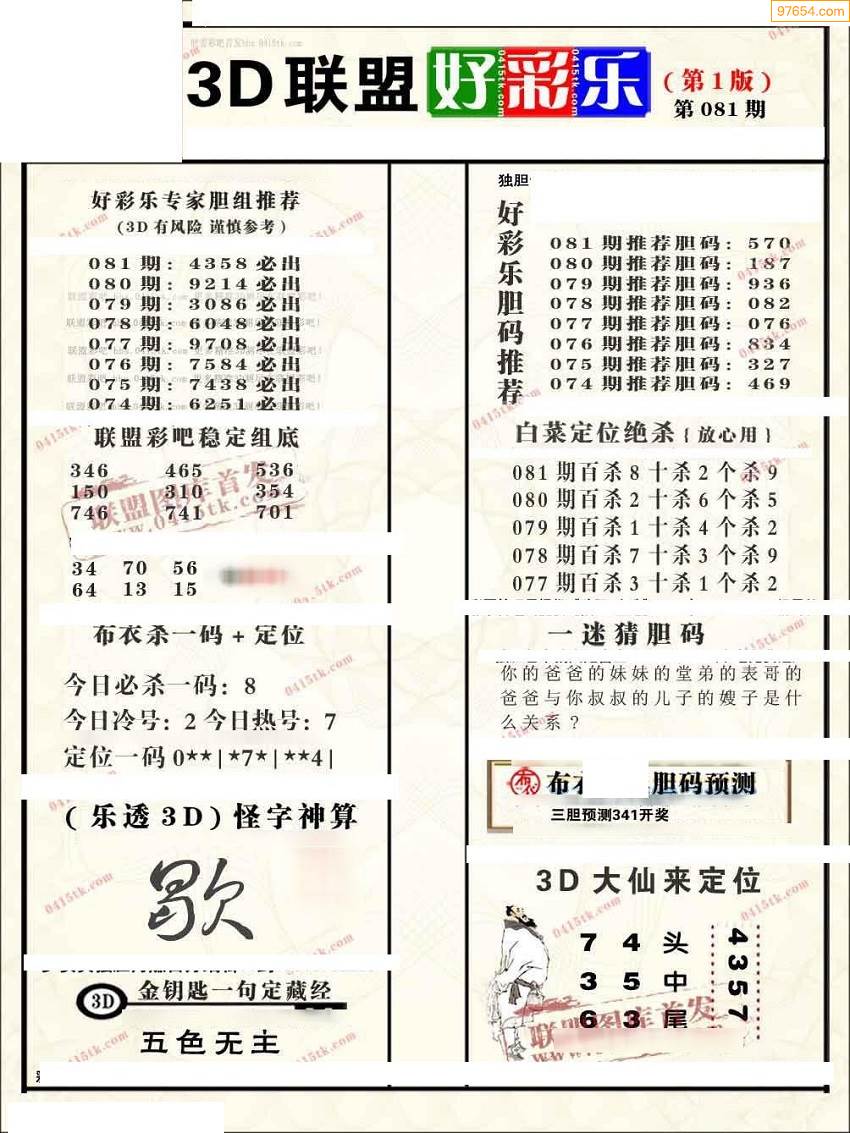 97654.com
3D联盟好彩乐
(第1版)
第081期
好彩乐专家胆组推荐
(3D有风险 谨慎参考)
081期: 4358必出
080期: 9214必出
079期: 3086必出
078期: 6048必出
077期: 9708必出
076期: 7584必出
075期: 7438必出
074期: 6251必出
联盟彩吧稳定组底
346 465 536
150 310 354
746 741 701
联盟图库首发
www.0415tk.com
34 70 56
64 13 15
布衣杀一码+定位
今日必杀一码: 8
今日冷号: 2 今日热号: 7
定位一码 0**|*7*|**4|
(乐透3D)怪字神算
歇
3D 金钥匙一句定藏经
五色无主
独胆
好彩乐胆码推荐
081期推荐胆码: 570
080期推荐胆码: 187
079期推荐胆码: 936
078期推荐胆码: 082
077期推荐胆码: 076
076期推荐胆码: 834
075期推荐胆码: 327
074期推荐胆码: 469
白菜定位绝杀{放心用}
081期百杀8十杀2个杀9
080期百杀2十杀6个杀5
079期百杀1十杀4个杀2
078期百杀7十杀3个杀9
077期百杀3十杀1个杀2
一迷猜胆码
你的爸爸的妹妹的堂弟的表哥的
爸爸与你叔叔的儿子的嫂子是什
么关系?
布衣 胆码预测
三胆预测341开奖
3D大仙来定位
7 4 头
3 5 中
6 3 尾
4357
联盟图库首发
0415tk.com